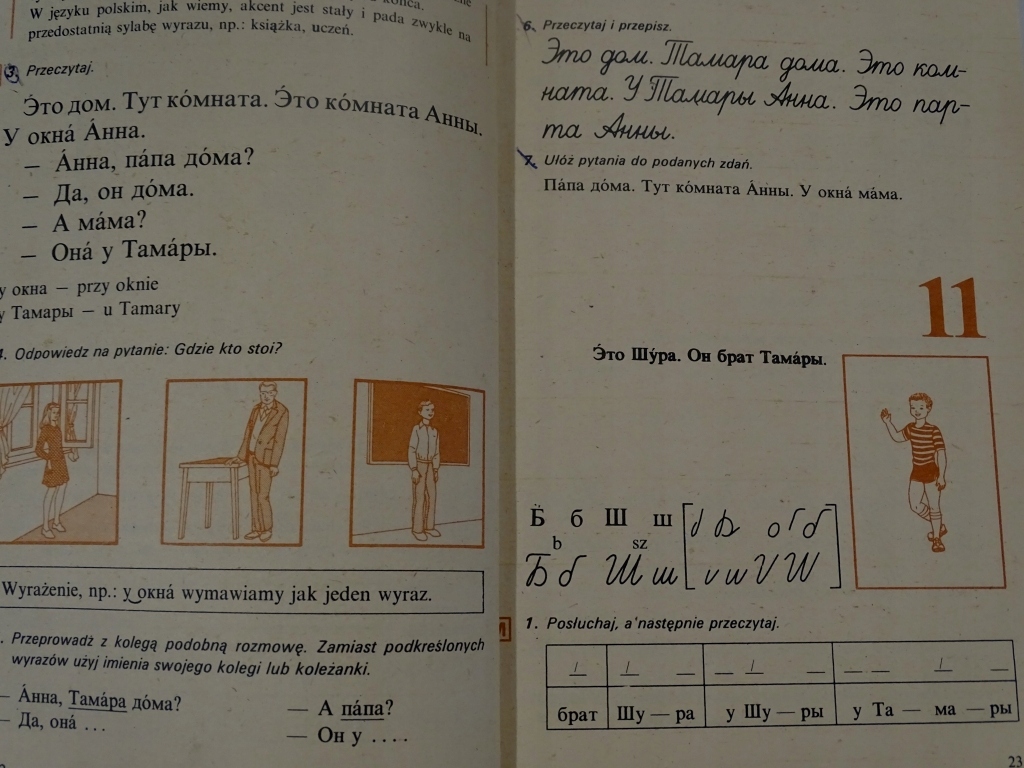 W języku polskim, jak wiemy, akcent jest stały i pada zwykle na
przedostatnią sylabę wyrazu, np.: książka, uczeń.
3. Przeczytaj.
Э́то дом. Тут ко́мната. Э́то ко́мната Анны.
У окна́ А́нна.
— А́нна, па́па до́ма?
— Да, он до́ма.
— А ма́ма?
— Она́ у Тама́ры.
у окна — przy oknie
у Тамары — u Tamary
4. Odpowiedz na pytanie: Gdzie kto stoi?
Wyrażenie, np.: у окна́ wymawiamy jak jeden wyraz.
Przeprowadź z kolegą podobną rozmowę. Zamiast podkreślonych
wyrazów użyj imienia swojego kolegi lub koleżanki.
— А́нна, Тама́ра до́ма?
— Да, она́ ...
— А па́па?
— Он у ....
6. Przeczytaj i przepisz.
Это дом. Тамара дома. Это ком-
ната. У Тамары Анна. Это пар-
та Анны.
7. Ułóż pytania do podanych zdań.
Па́па до́ма. Тут ко́мната А́нны. У окна́ ма́ма.
11
Э́то Шу́ра. Он брат Тама́ры.
Б б Ш ш
b sz
Б б Ш ш
1. Posłuchaj, a następnie przeczytaj.
брат Шу — ра у Шу — ры у Та — ма — ры
23